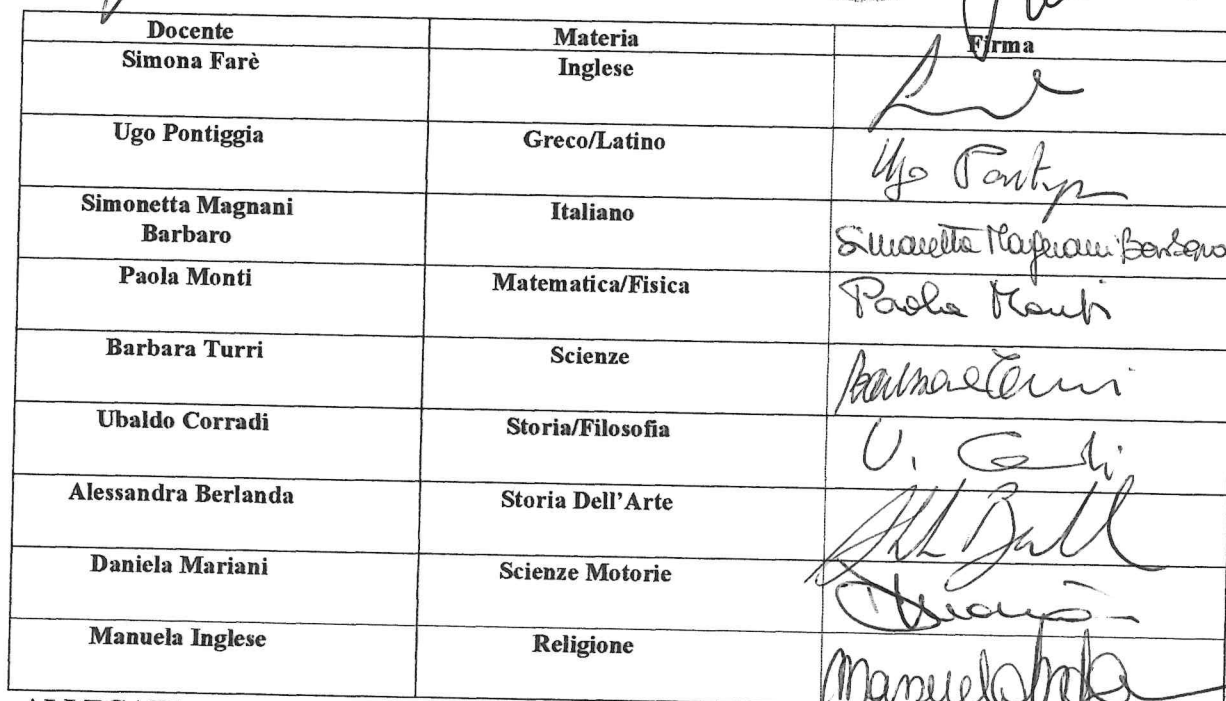 Docente Materia Firma
Simona Farè Inglese
Ugo Pontiggia Greco/Latino Ugo
Simonetta Magnani Italiano
Barbaro Simonetta Magnani Barbaro
Paola Monti Matematica/Fisica Paola Monti
Barbara Turri Scienze Barbara Turri
Ubaldo Corradi Storia/Filosofia U.
Alessandra Berlanda Storia Dell'Arte
Daniela Mariani Scienze Motorie
Manuela Inglese Religione Manuela